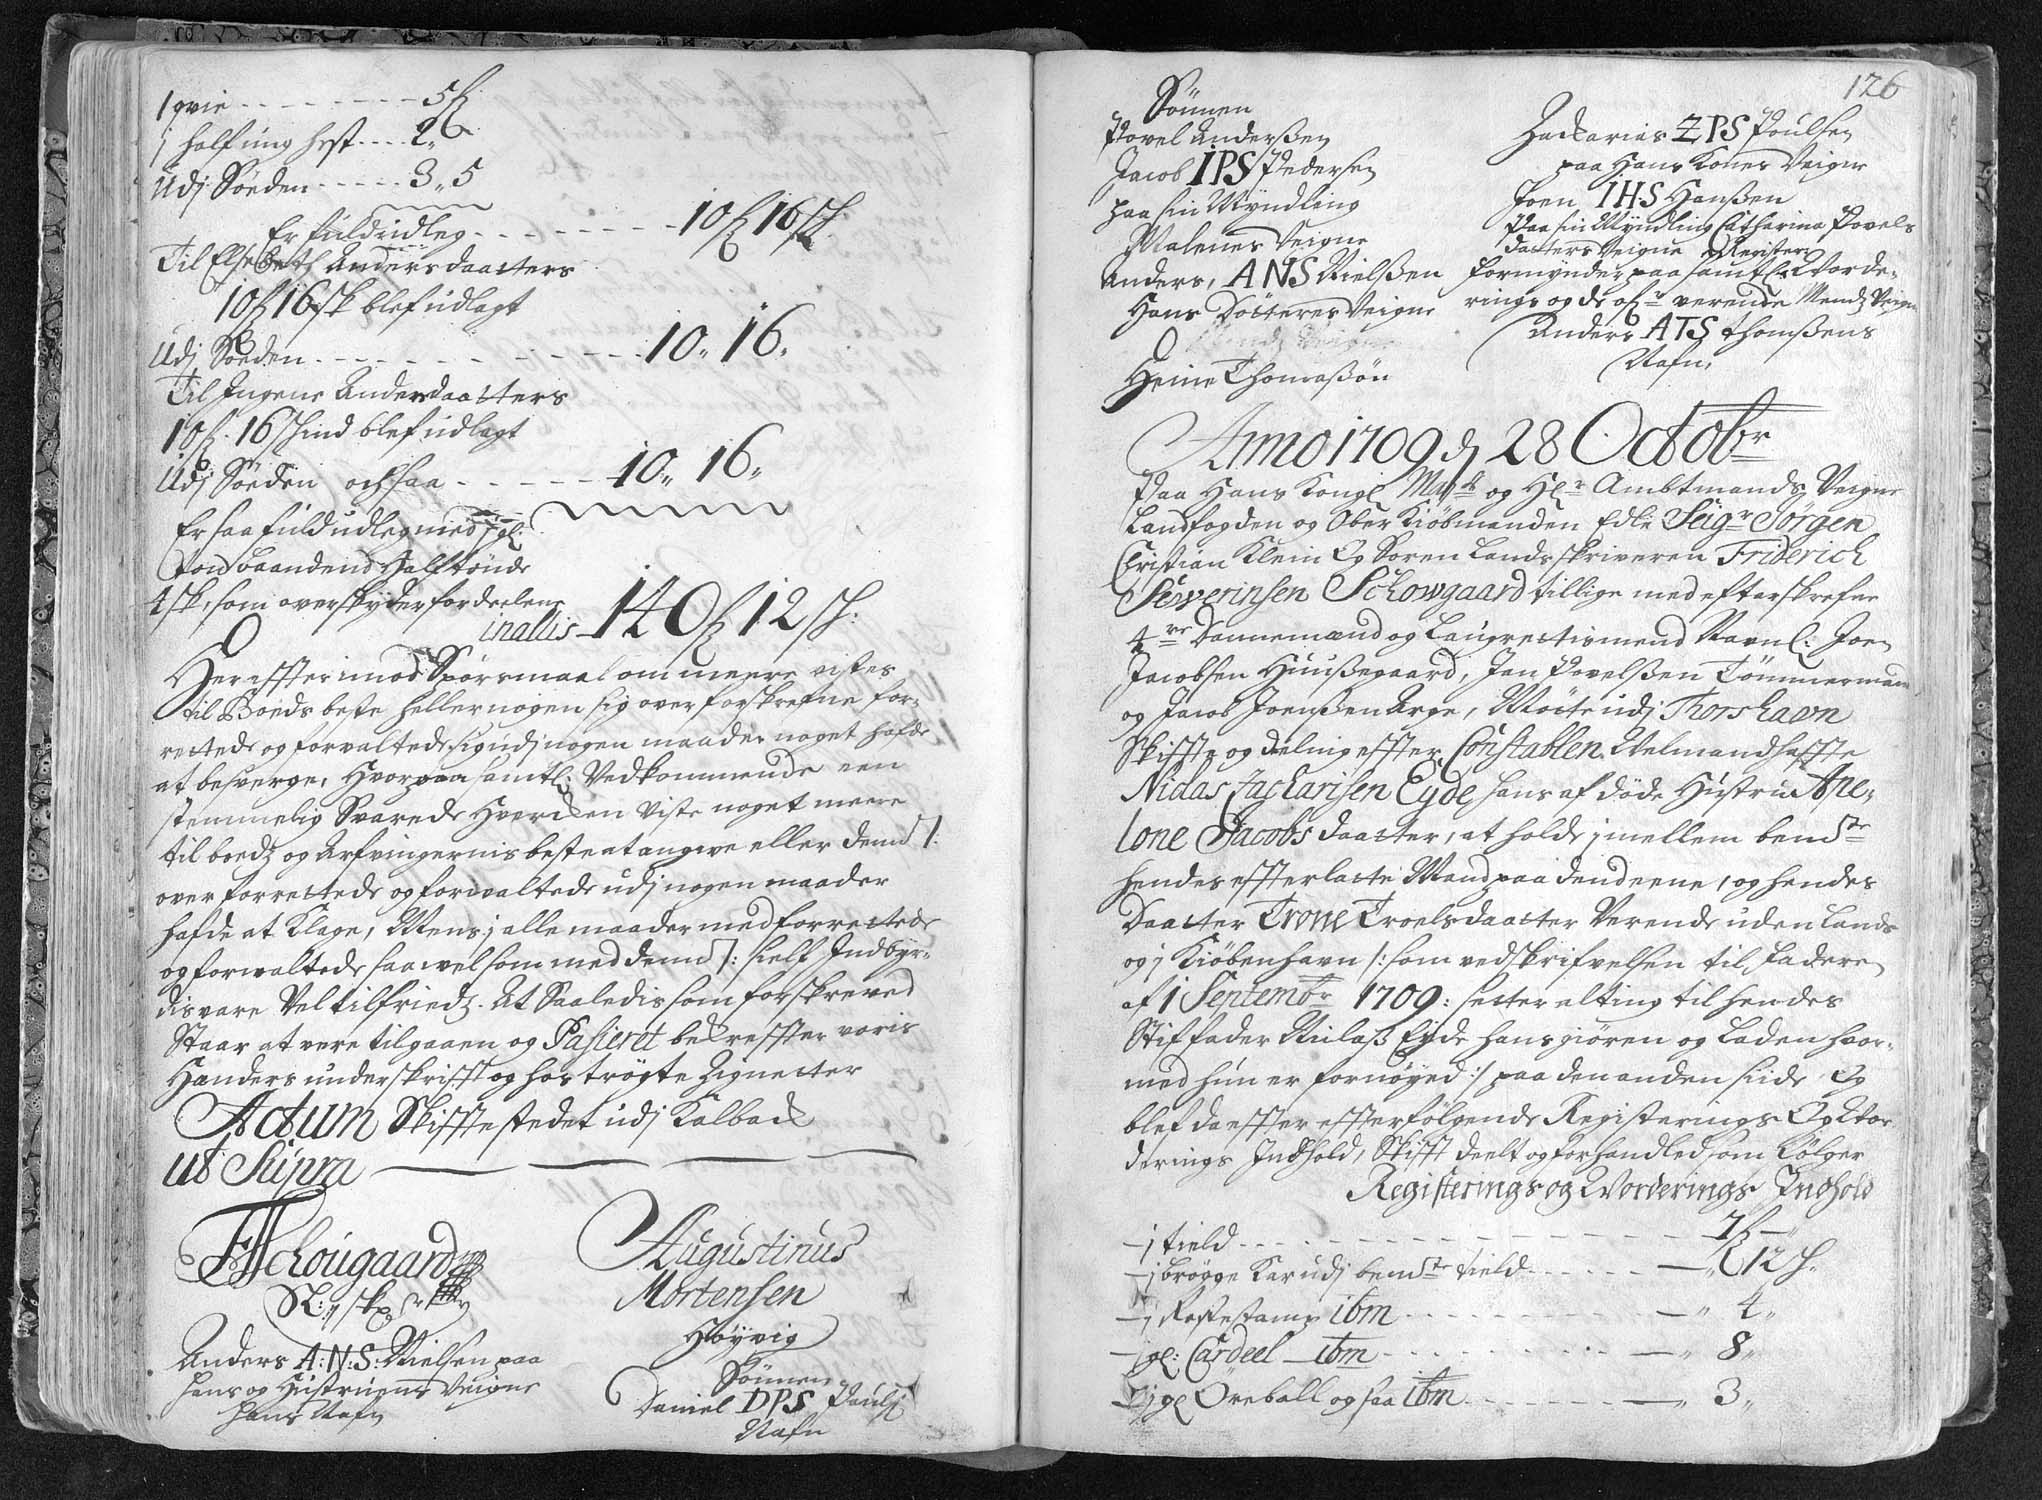 1 qvie - - - - - - - - 5 f
j half ung hest - - - - 2 "
Udj Søeden - - - - - 3 " 5
Er fuld udleg - - - - - - - - 10 f 16 sk:
Til Elsebeth Andersdaatters
10 f 16 sk blef udlagt
Udj Søeden - - - - - - - - - - - 10 " 16 "
Til Ingene Andersdaatters
10 f. 16 Skind blef udlagt
Udj Søeden och saa - - - - - 10 " 16 "
Er saa fuld udleg med j gl:
tønde
4 sk, som overskyder fordeelene
inallis 140 f 12 sk:
Herefter imod Spørsmaal om meere vistes
til Boeds beste heller nogen sig over forskrefne for-
rettede og forvaltede sig udj nogen maader noget hafde
at besverge, Hvorpaa samtl: Vedkommende een
stemmelig Svarede Hvercken viste noget meere
til boedz og Arfvingernis beste at angive eller dennem
over forrettede og forvaltede udj nogen maader
hafde at Klage, Mens j alle maader med forrettede
og forvaltede saavel som med dennem sielf Indbyr-
dis vare Vel tilfriedz. At Saaledis som forskrevet
Staar at vere tilgaaen og Pasieret bekrefter voris
Hænders underskrifft og hostrøgte Zignetter
Actum Skifftestedet udj Kalbach
ut Supra
FSchougaard
SL: skr:
Anders A:N:S: Nielsen paa
hans og Hustruens Veigne
hans Nafn
Augustinus
Mortensen
Høyvig
Sønnen
Daniel DPS Pouls
Nafn
126
Sønnen
Povel Anderßen
Jacob IPS Pedersen
paa sin Myndling
Malenes Veigne
Anders, ANS Nielßen
Hans Døtteres Veigne
Heine Thomasßøn
Zacharias ZPS Poulsen
paa Hans Kones Veigne
Joen IHS Hanßen
Paa sin Myndling Catharina Povels
datters Veigne Register
formynder, paa samtl: Vorde-
rings og de ofr verende Mendz Veigne
Anders ATS Thomßens
Nafn,
Anno 1709 d 28 Octobr
Paa Hans Kongl Mayts og Hl:r Ambtmands Veigne
Landfogden og Ober Kiøbmanden Edle Seigr Jørgen
Christian Klein Og Soren landsskriveren Friderich
Sewerinsen Schowgaard tillige med efterskrefne
4re Dannemænd og Laugrettismend Navnl: Joen
Jacobsen Huußegaard, Jan Povelßen Tømmermand,
og Jacob Joenßen Arge, Møtte udj Thorshavn
Skiffte og deling effter Constablen Welmandhaffte
Niclas Zacharisen Eyde hans afdøde Hustru Ane-
lone Jacobs daatter, at holde jmellem bemte
hendes effterlatte Mand paa dend eene, og hendes
Daatter Trone Troelsdaatter Verende uden Lands
og j Kiøbenhavn /: som ved skrifvelsen til Faderen
af 1 Septembr 1709: setter alting til hendes
Stiffader Niclaß Eyde hans giøren og Laden hvor-
med hun er fornøyed :/ paa den anden siide, Og
blef da effter effterfølgende Registerings Og Vor
derings Indhold, Skifft deelt og forhandled som følger
Registerings og Worderings Indhold
– j tield - - - - - - - - - - - - - - - - - 7 f –
– j brøgge Kar udj bemte tield - - - - - - – " 12 sk.
– j Røstestamp ibm - - - - - - - - - - – " 4 "
– j gl: Cardeel ibm - - - - - - - - - - – " 8 "
– j gl Øreball og saa ibm - - - - - - - – " 3 "